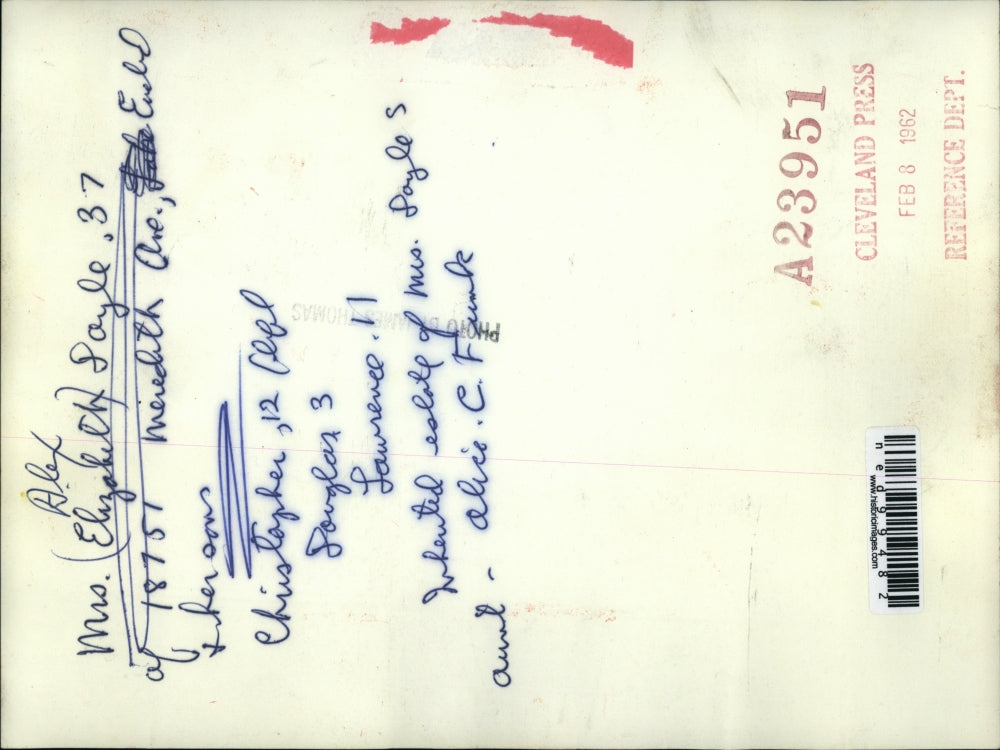 Alex
Mrs. (Elizabeth) Soyle, 37
of 18751 Meredith Ave., Euclid
& her sons
Christopher, 12
Douglas 3
Lawrence. 11
Inherited estate of Mrs. Soyle s
aunt - Alice. C. Funk
PHOTO BY JAMES THOMAS
A23951
CLEVELAND PRESS
FEB 8 1962
REFERENCE DEPT.
www.historicimages.com
ned99482